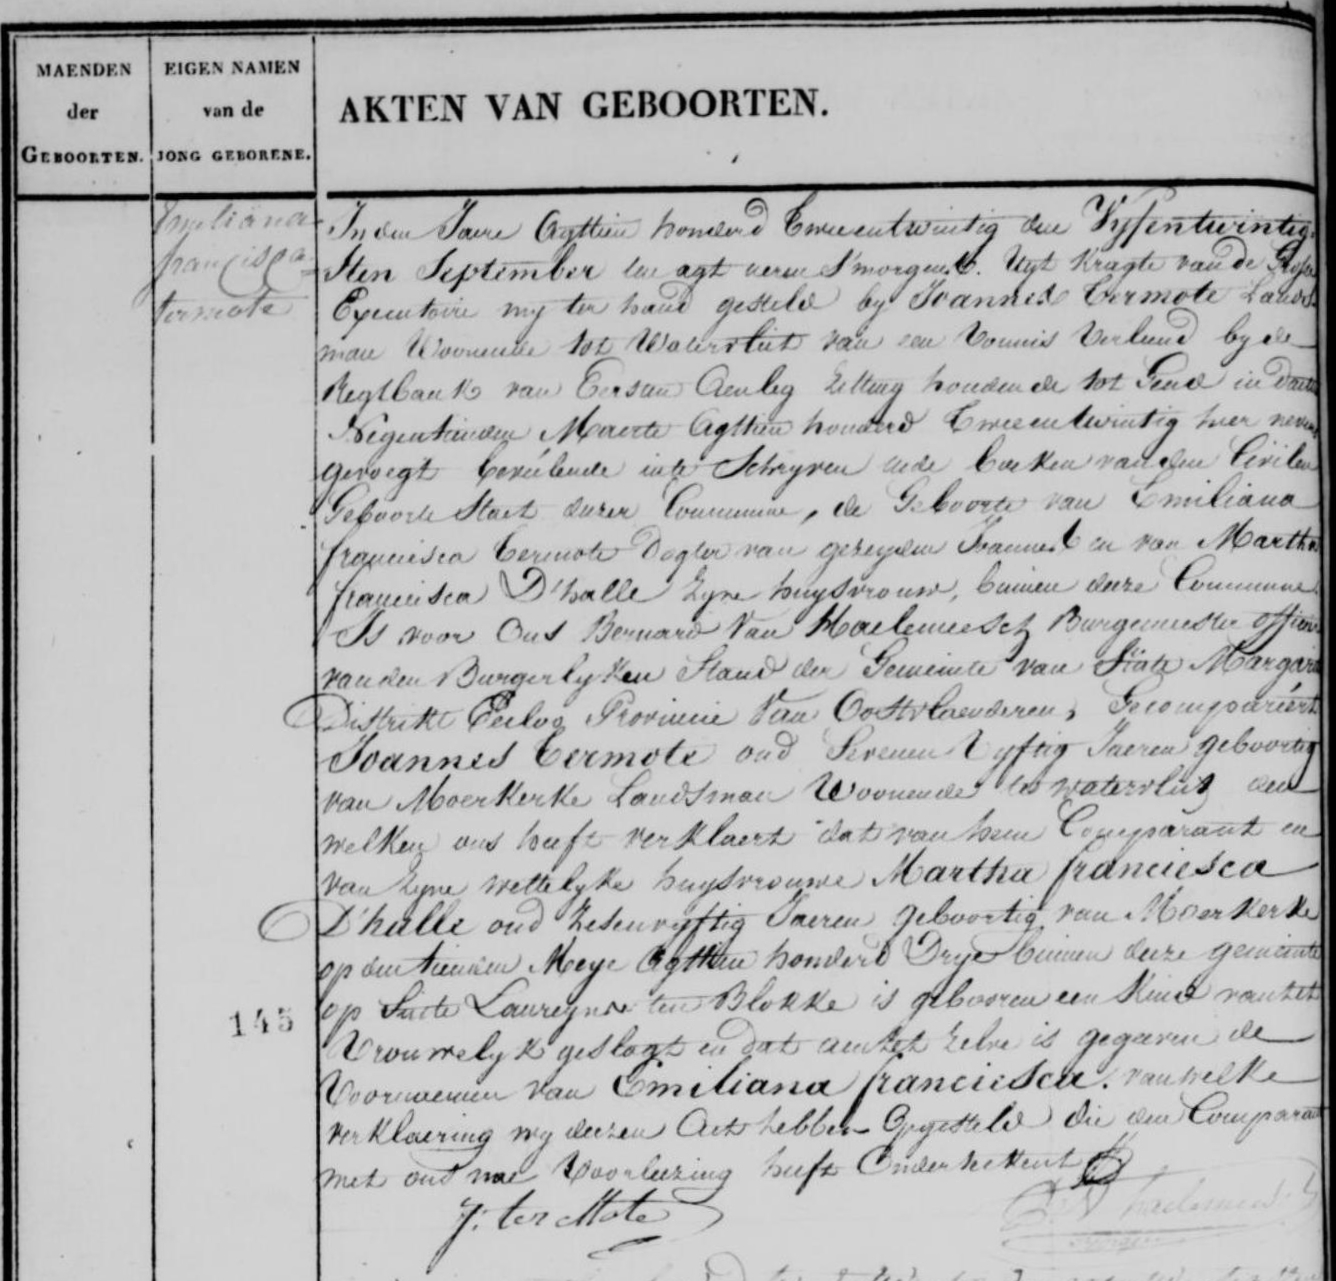 MAENDEN
der
GEBOORTEN.
EIGEN NAMEN
van de
JONG GEBORENE.
AKTEN VAN GEBOORTEN.
Emiliana
francisca
termote
In den Jaere Agttien honderd Tweeentwintig den Vyfentwintig
sten September ten agt ueren S'morgens. Uyt kragte van de
Executoire my ter hand gesteld by Joannes Termote Lands
man Woonende tot Watervliet van een Vonnis Verleend by de
Regtbank van Eersten Aenleg Zitting houdende tot Gend in
Negentienden Maerte Agttien honderd Tweeentwintig hier nevens
gevoegt bevelende inte Schryven inde boeken van den Civilen
Geboorte Staet dezer Commune, de Geboorte van Emiliana
francisca Termote Dogter van gezeyden Joannes en van Martha
francisca D'halle Zyne huysvrouw, binnen deze Commune.
Is voor Ons Bernard Van Haelemeesch Burgemeester officier
van den Burgerlyken Stand der Gemeinte van Ste Margar
Distrikt Eecloo Provincie Van Oostvlaenderen, Gecompareert
Joannes Termote oud Sevenen Vyftig Jaeren geboortig
van Moerkerke Landsman Woonende tot watervliet den
welken ons heeft verklaert dat van hem Comparant en
van Zyne wettelyke huysvrouwe Martha franciesca
D'halle oud Zesenvyftig Jaeren geboortig van Moerkerke
op den tienden Meye Agttien honderd Drye binnen deze gemeinte
op Laureyns ten Blokke is gebooren een Kind van het
145
Vrouwelyk geslagt en dat aen het zelve is gegeven de
Voornaemen van Emiliana franciesca. van welke
verklaering wy dezen Act hebben Opgesteld die den Comparant
met ons nae Voorlezing heeft Onderteekent
J: ter Mote